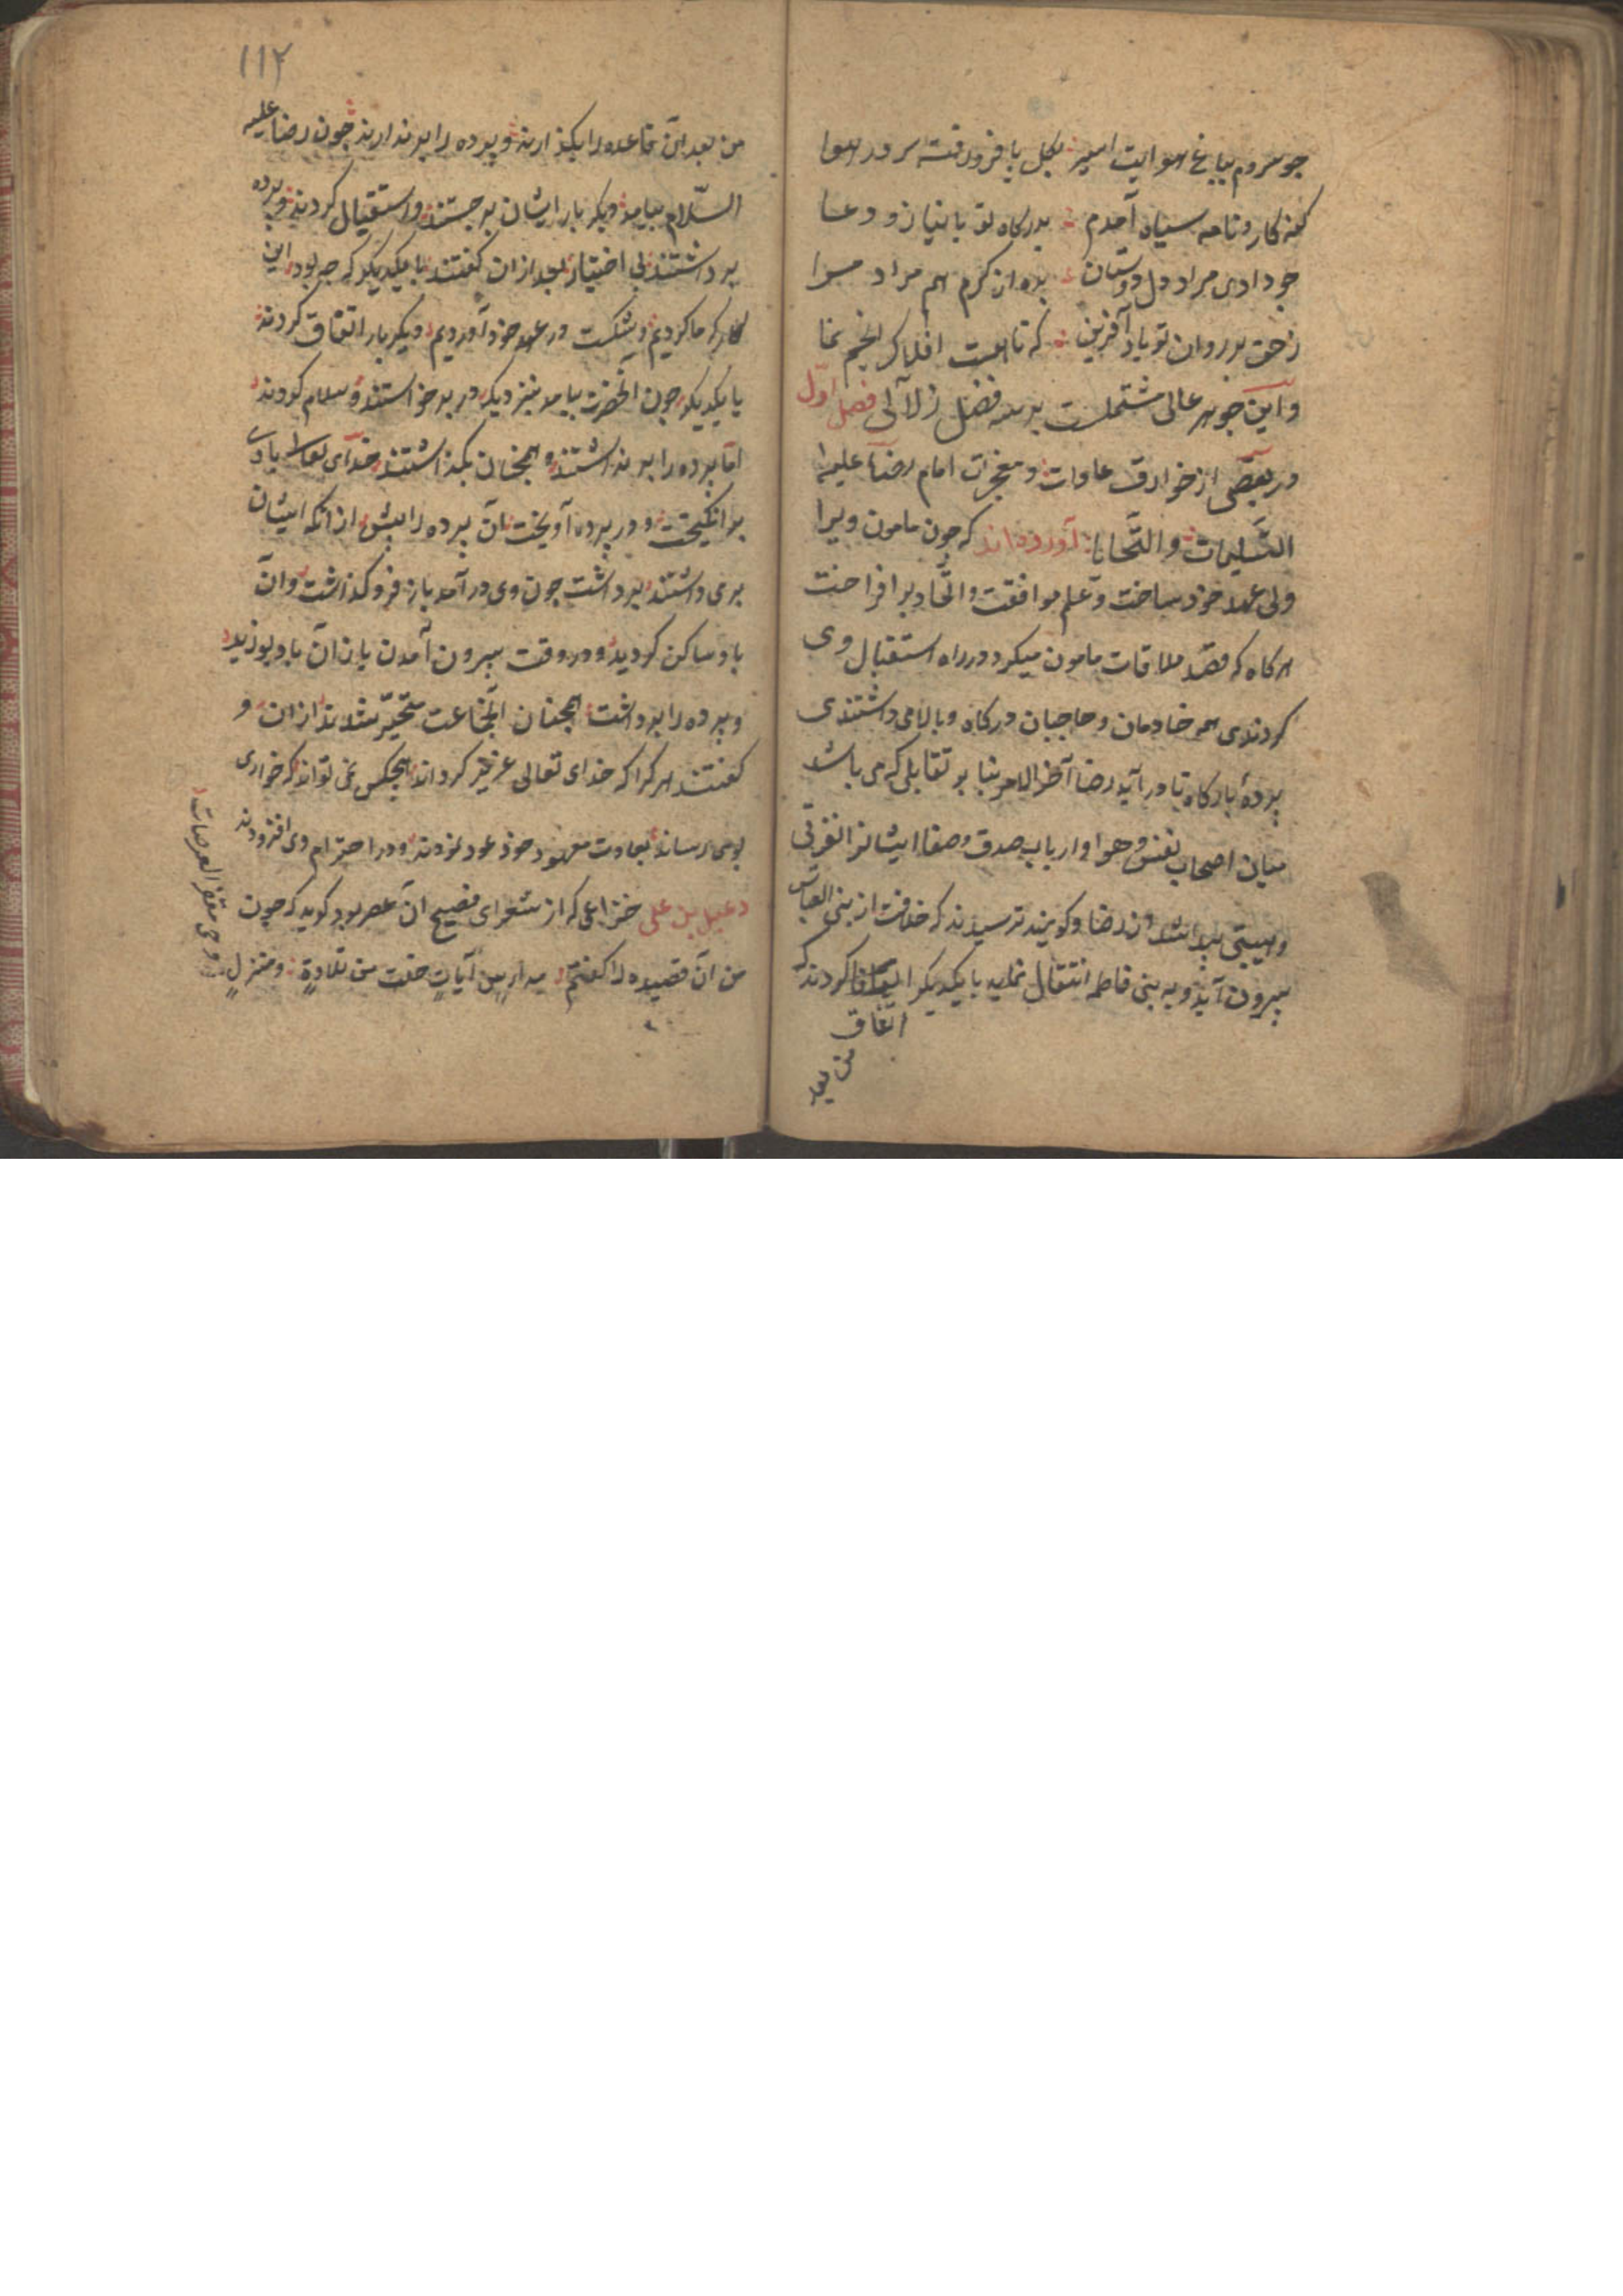 چو سروم بباغ هوایت اسیر بکل پا فرو رفته سر در هوا
کنه کار و نامه سیاه آمدم بدرکاه تو با نیاز و دعا
چو دادی مراد دل دوستان بده از کرم هم مراد مرا
ز حق بر روان تو باد آفرین که تا هست افلاک انجم نما
و این جوهر عالی مشتملست بر سه فصل زلالی فصل اول
در بعضی از خوارق عادات و معجزات امام رضا علیه
التسلیمات والتحایا آورده اند که چون مامون ویرا
ولی عهد خود ساخت و علم موافقت و اتحاد بر افراخت
هر کاه که قصد ملاقات مامون میکرد در راه استقبال وی
کردندی همه خادمان و حاجبان درکاه و بالا می داشتندی
پردهٔ بارکاه تا در آید رضا آخر الامر بنا بر تقابلی که می باشد
میان اصحاب نفس و هوا و ارباب صدق و صفا ایشانرا نفرتی
و هیبتی پیدا شد از رضا و کویند ترسیدند که خلافت از بنی العباس
بیرون آید و به بنی فاطمه انتقال نماید با یکدیکر کردند که
اتفاق
من بعد
۱۱۲
من بعد آن قاعده را بکذارند و پرده را بر ندارند چون رضا علیه
السلام بیامد دیکر بار ایشان بر جستند و استقبال کردند و پرده
بر داشتند بی اختیار بعد ازان کفتند با یکدیکر که چه بود این
کار که ما کردیم و شکست در عهد خود آوردیم دیکر بار اتفاق کردند
با یکدیکر چون آنحضرت بیامد بنزدیک در بر خواستند و سلام کردند
اما پرده را بر نداشتند و همچنان بکذاشتند خدای تعالی بادی
بر انکیخت و در پرده آویخت آن پرده را پیش از انکه ایشان
بر می داشتند بر داشت چون وی در آمد باز فرو کذاشت و آن
باد ساکن کردید و در وقت بیرون آمدن باز آن باد بوزید
و پرده را بر داشت همچنان آنجماعت متحیر شدند از ان و
کفتند هر کرا که خدای تعالی عزیز کرداند هیچکس نمی تواند که خواری
بوی رساند بعادت معهود خود عود نمودند و در احترام وی افزودند
دعبل بن علی خزاعی که از شعرای فصیح آن عصر بود کوید که چون
من آن قصیده را کفتم مدارس آیات خلت من تلاوة و منزل
وحی مقفر العرصات